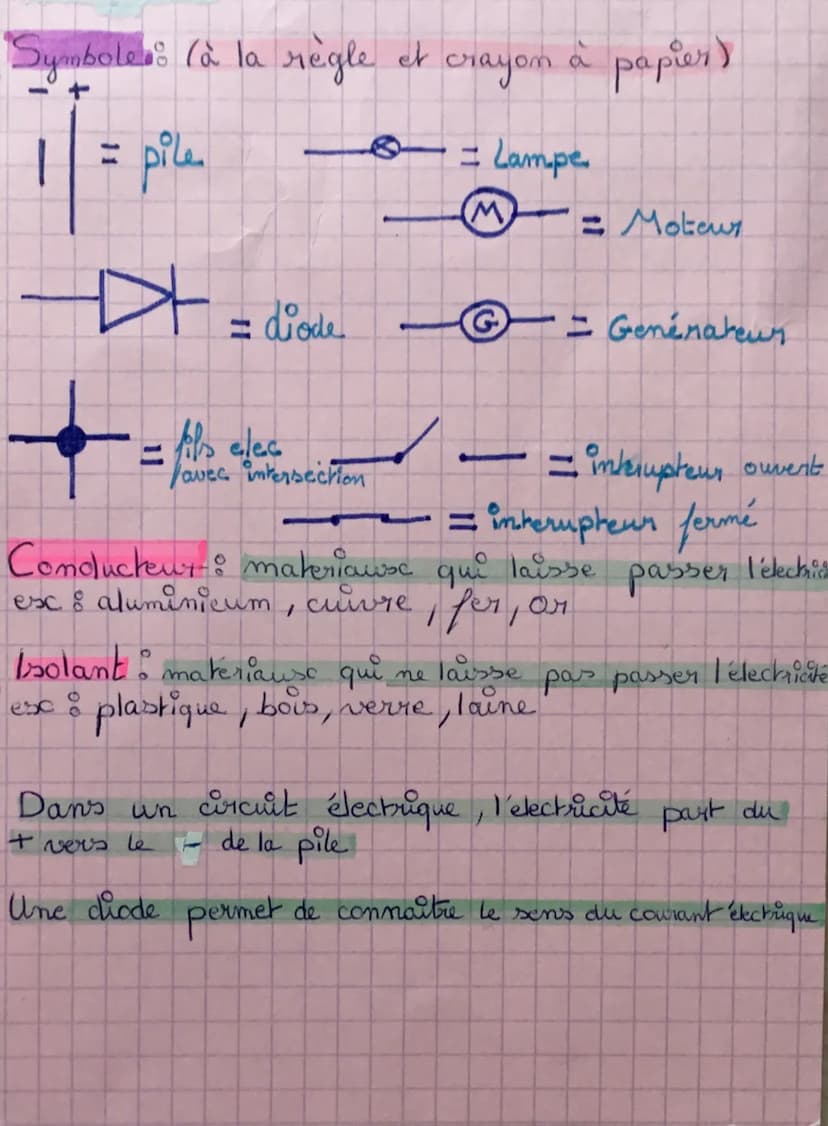 Symbole : (à la règle et crayon à papier)
- +
= pile
= Lampe
M = Moteur
= diode
G = Genérateur
= fils elec
/avec intersection
= interupteur ouvert
= interupteur fermé
Conducteur : materiaux qui laisse passer l'électrici
ex : aluminieum, cuivre, fer, or
Isolant : matériaux qui ne laisse pas passer l'électricité
ex : plastique, bois, verre, laine
Dans un circuit électrique, l'electricité part du
+ vers le - de la pile
Une diode permet de connaître le sens du courant électrique